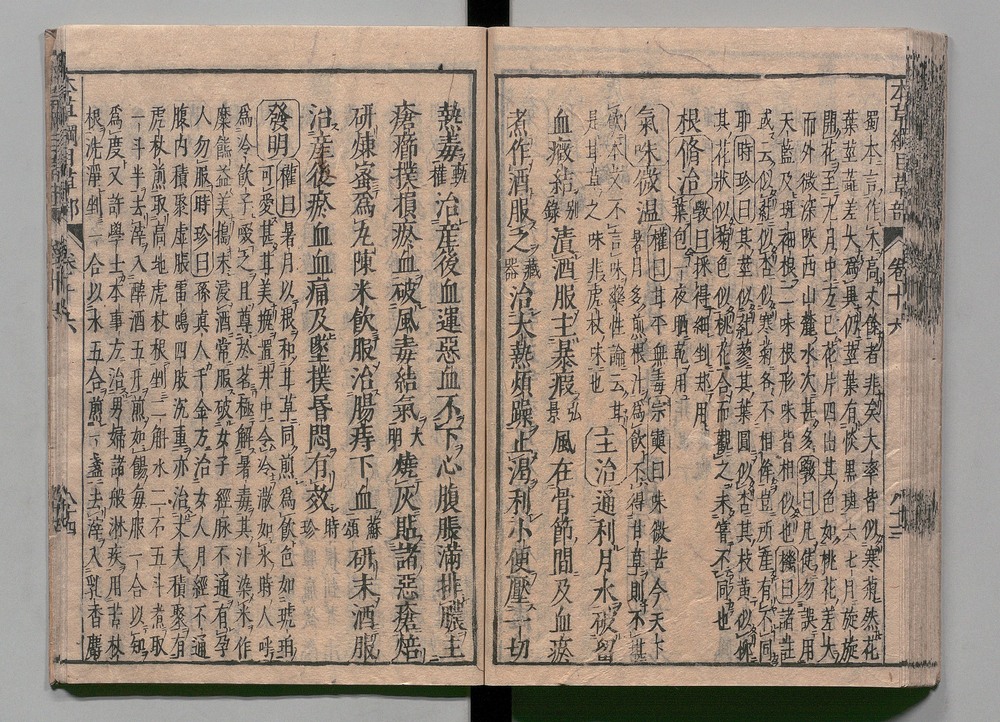 本草綱目草部 卷十六
蜀本言作木高丈餘者非矣大率皆似寒菊然花
葉莖蕊差大爲異仍莖葉有淡黑斑六七月旋旋
開花至九月中方已花片四出其色如桃花差大
而外微深陝西山麓水次甚多斅曰凡使勿誤用
天藍及斑袖根二味根形味皆相似也機曰諸註
或云似紅草似杏似寒菊各不相侔豈所產有不同
耶時珍曰其莖似紅蓼其葉圓似杏其枝黃似柳
其花狀似菊色似桃花合而觀之未嘗不同也
根
修治
斅曰採得細剉却用
葉包一夜晒乾用
氣味微溫
權曰甘平無毒宗奭曰味微苦今天下
暑月多煎根汁爲飲不得甘草則不堪
飲本文不言味藥性論云甘
是甘草之味非虎杖味也
主治通利月水破留
血癥結
別錄
漬酒服主暴瘕
弘景
風在骨節間及血瘀
煮作酒服之
藏器
治大熱煩躁止渴利小便壓一切
熱毒
甄權
治產後血運惡血不下心腹脹滿排膿主
瘡癤撲損瘀血破風毒結氣
大明
燒灰貼諸惡瘡焙
研煉蜜爲丸陳米飲服治腸痔下血
蘇頌
研末酒服
治產後瘀血血痛及墜撲昏悶有效
時珍
發明
權曰暑月以根和甘草同煎爲飲色如琥珀
可愛甚甘美瓶置井中令冷澈如氷時人呼
爲冷飲子啜之且尊於茗極解暑毒其汁染米作
糜餻益美擣末浸酒常服破女子經脉不通有孕
人勿服時珍曰孫眞人千金方治女人月經不通
腹內積聚虛脹雷鳴四肢沉重亦治丈夫積聚有
虎杖煎取高地虎杖根剉二斛水二石五斗煮取
一斗半去滓入醇酒五升煎如餳每服一合以知
爲度又許學士本事方治男婦諸般淋疾用苦杖
根洗淨剉一合以水五合煎一盞去滓入乳香麝
本草綱目草部 卷十六